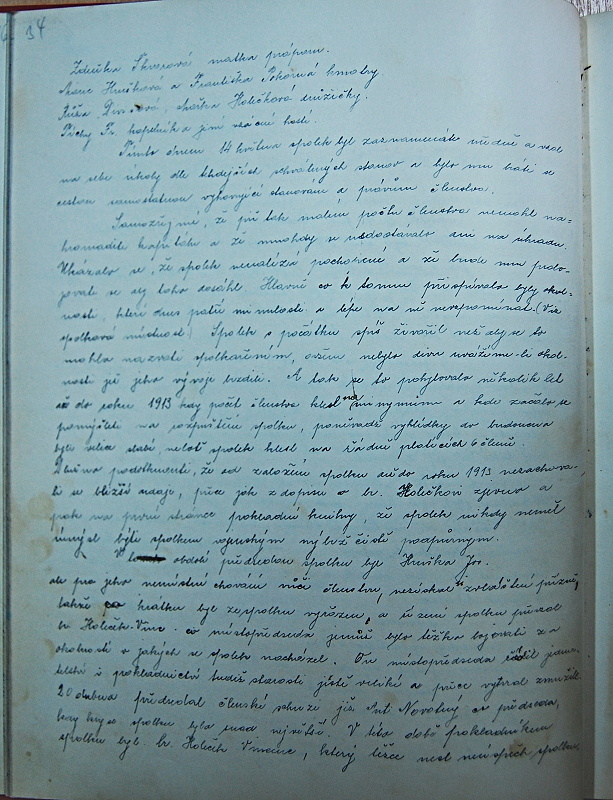 34
Zdeňka Škvorová matka prápom.
Marie Hrušková a Františka Pokorná kmotry.
Růža, Mařka Holečková družičky.
Pichy Fr. kapelník a jiní vzácní hosté.
Tímto dnem 14 května spolek byl zaznamenán úředně a vzal
na sebe úkoly dle tehdejších schválených stanov a bylo mu bráti se
cestou samostatnou vyhovující stanovám a právům členstva.
Samozřejmě, že při tak malém počtu členstva nemohl na=
hromaditi kapitálu a že mnohdy se nedostávalo ani na úhradu.
Ukázalo se, že spolek nenalézá pochopení a že bude mu probo-
jovati se aby toho dosáhl. Hlavně co k tomu přispívalo byly okol-
nosti, které dnes patří minulosti a lépe na ně nevzpomínat. (Viz
spolková místnost) Spolek s počátku spíš živořil než aby se to
mohlo nazvati spolkařením, ovšem nebylo divu uvážíme-li okol-
nosti jež jeho vývoje brzdili. A tak se to pohybovalo několik let
až do roku 1913 kdy počet členstva klesl na minymum a kde začalo se
pomýšleti na rozpuštění spolku, poněvadž vyhlídky do budoucna
byli velice slabé, neboť spolek klesl na řádně platících 6 členů.
Dlužno podotknouti, že od založení spolku až do roku 1913 nezachova-
li se bližší údaje, pouze jak z dopisu br. Holečkovi zjeveno a
pak na první stránce pokladní knihy, že spolek nikdy neměl
úmysl býti spolkem vojenským nýbrž čistě podpůrným.
V období předsedou spolku byl Hruška Jos.
ale pro jeho nemístné chování vůči členstvu, nezískal zvláštní přízně,
takže krátku byl ze spolku vyřazen, a řízení spolku převzal
br. Holeček Vinc. co místopředseda jemuž bylo těžko bojovati za
okolností v jakých se spolek nacházel. On místopředseda řídil jedna-
telství i pokladnictví tudíž starosti jistě veliké a práce vytrval zmužile.
20 dubna předsedal členské schůzi již Ant Novotný co předseda,
kdy krise spolku byla snad největší. V této době pokladníkem
spolku byl br. Holeček Vincenc, který těžce nesl neúspěch spolku,